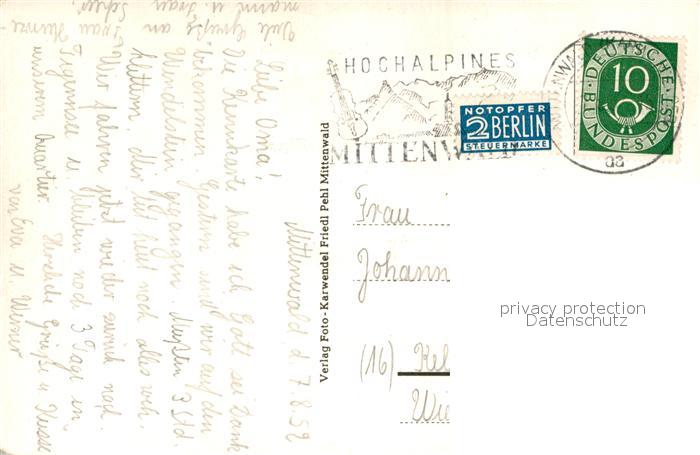 Mittenwald, d. 7.8.52
Liebe Oma!
Die Kennkarte habe ich Gott sei Dank
bekommen. Gestern sind wir auf den
gegangen. Mußten 3 Std.
klettern, der tut heut noch alles weh.
Wir fahren jetzt wieder zurück nach
Tegernsee u. bleiben noch 3 Tage in
unserem Quartier. Herzliche Grüße u. Küsse
von Eva u. Werner
Viele Grüße an Frau
mann u. Frau
Verlag Foto - Karwendel Friedl Pehl Mittenwald
HOCHALPINES
MITTENWALD
NOTOPFER
2 BERLIN
STEUERMARKE
DEUTSCHE
10
BUNDESPOST
aa
Frau
Johann
(16) Kel
Wie
privacy protection
Datenschutz